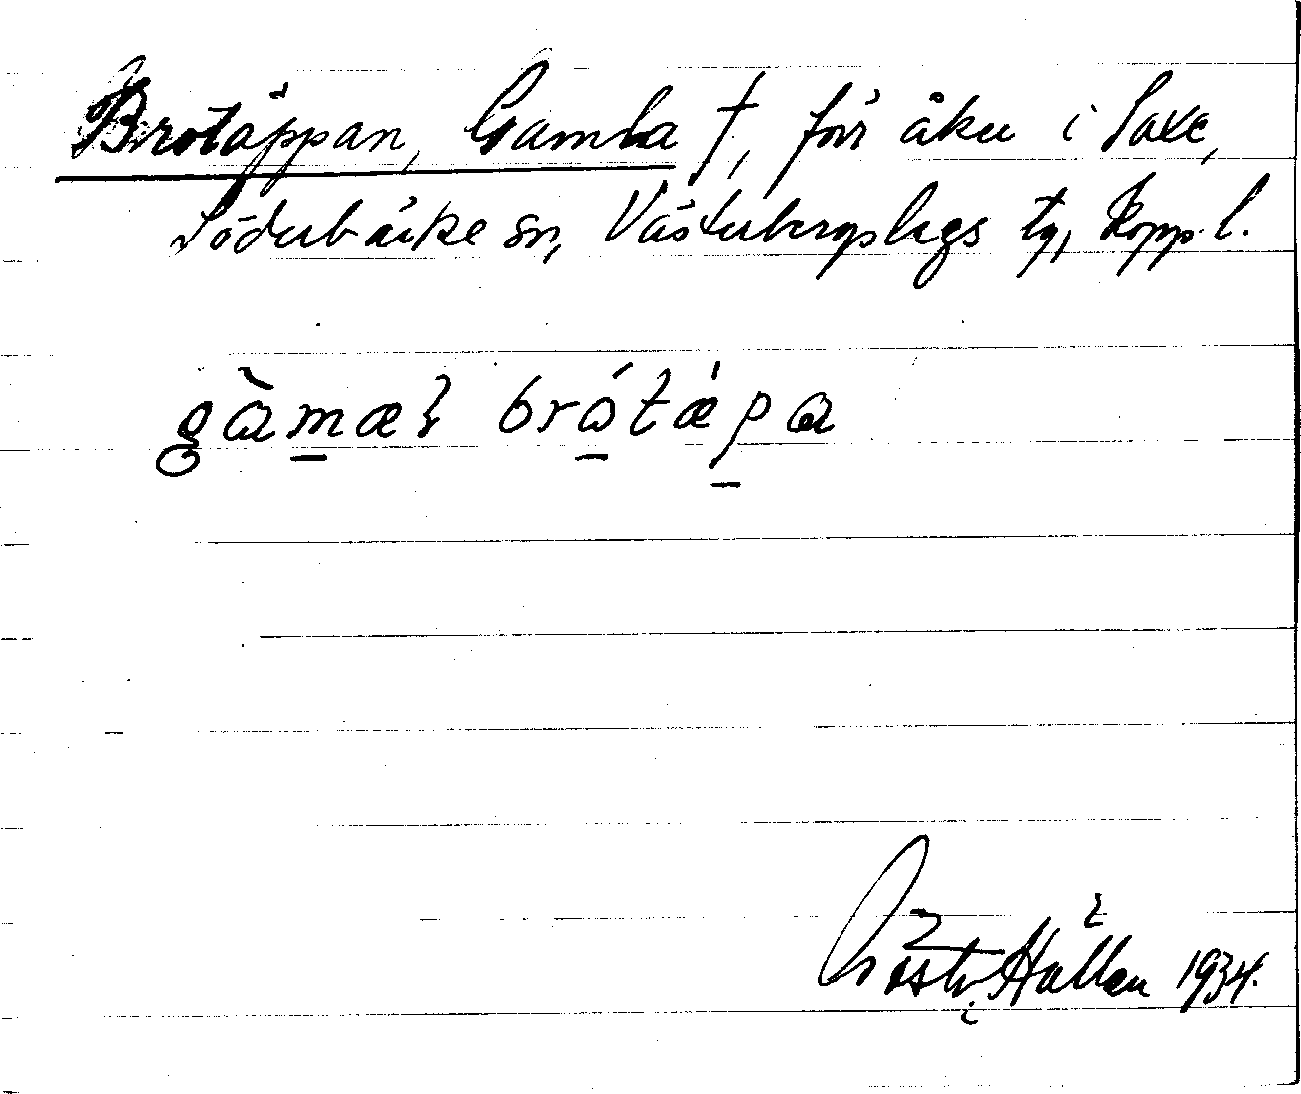 Brotäppan, Gamla †, förr åker i Saxe,
Söderbärke sn, Västerbergslags tg, Kopp. l.
gàmæł brótæ̍pa
Gösta Hallén 1934.